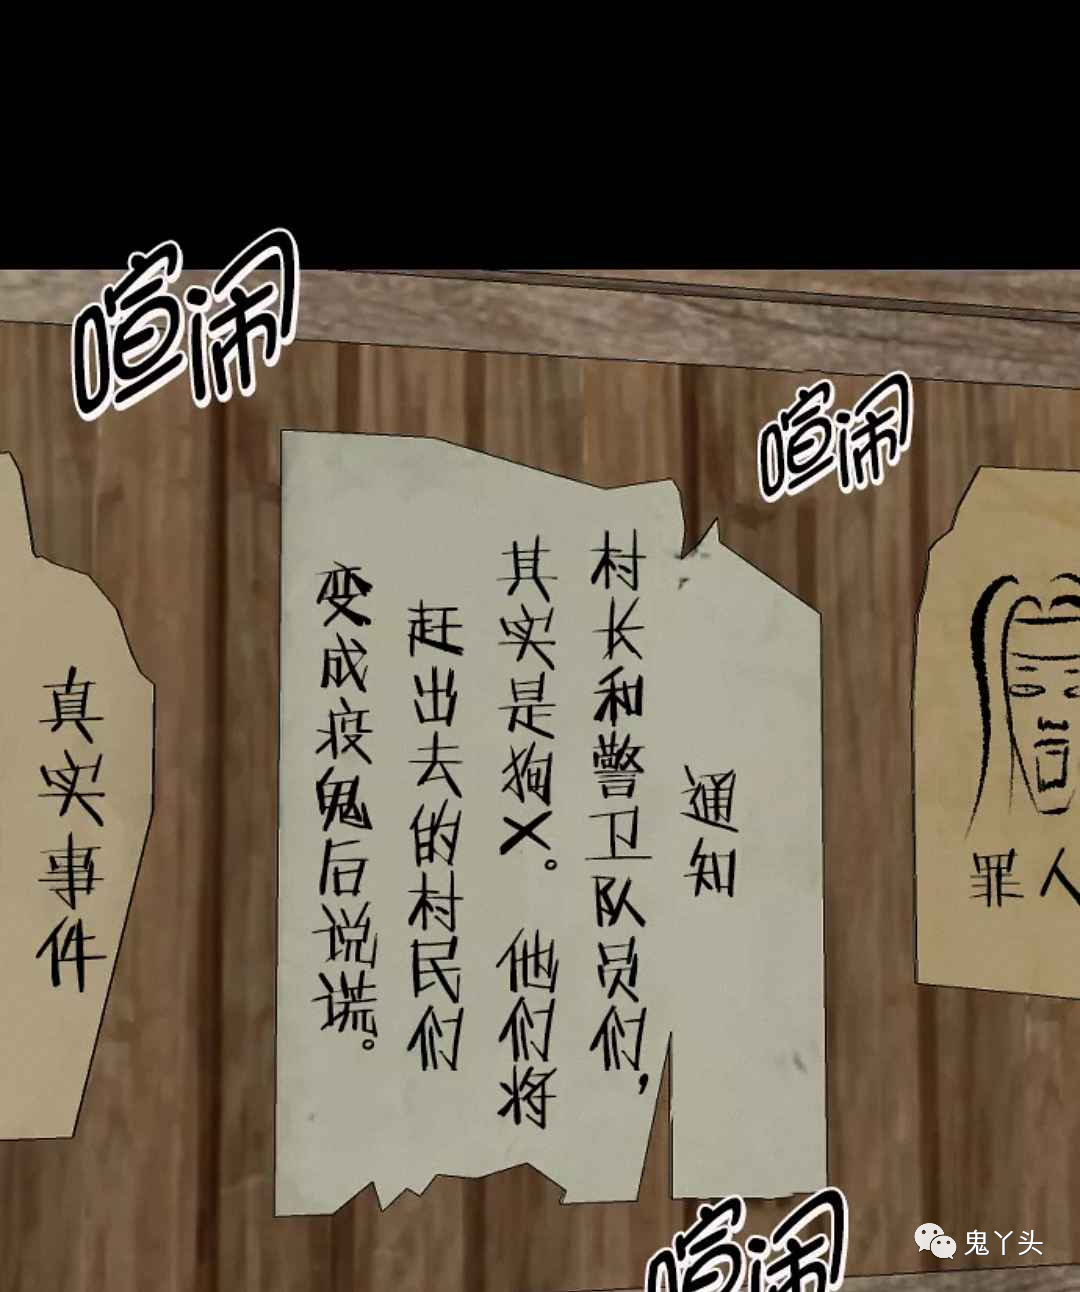 喧闹
喧闹
通知
村长和警卫队员们，
其实是狗X。他们将
赶出去的村民们
变成疫鬼后说谎。
真实事件
罪人
喧闹
鬼丫头